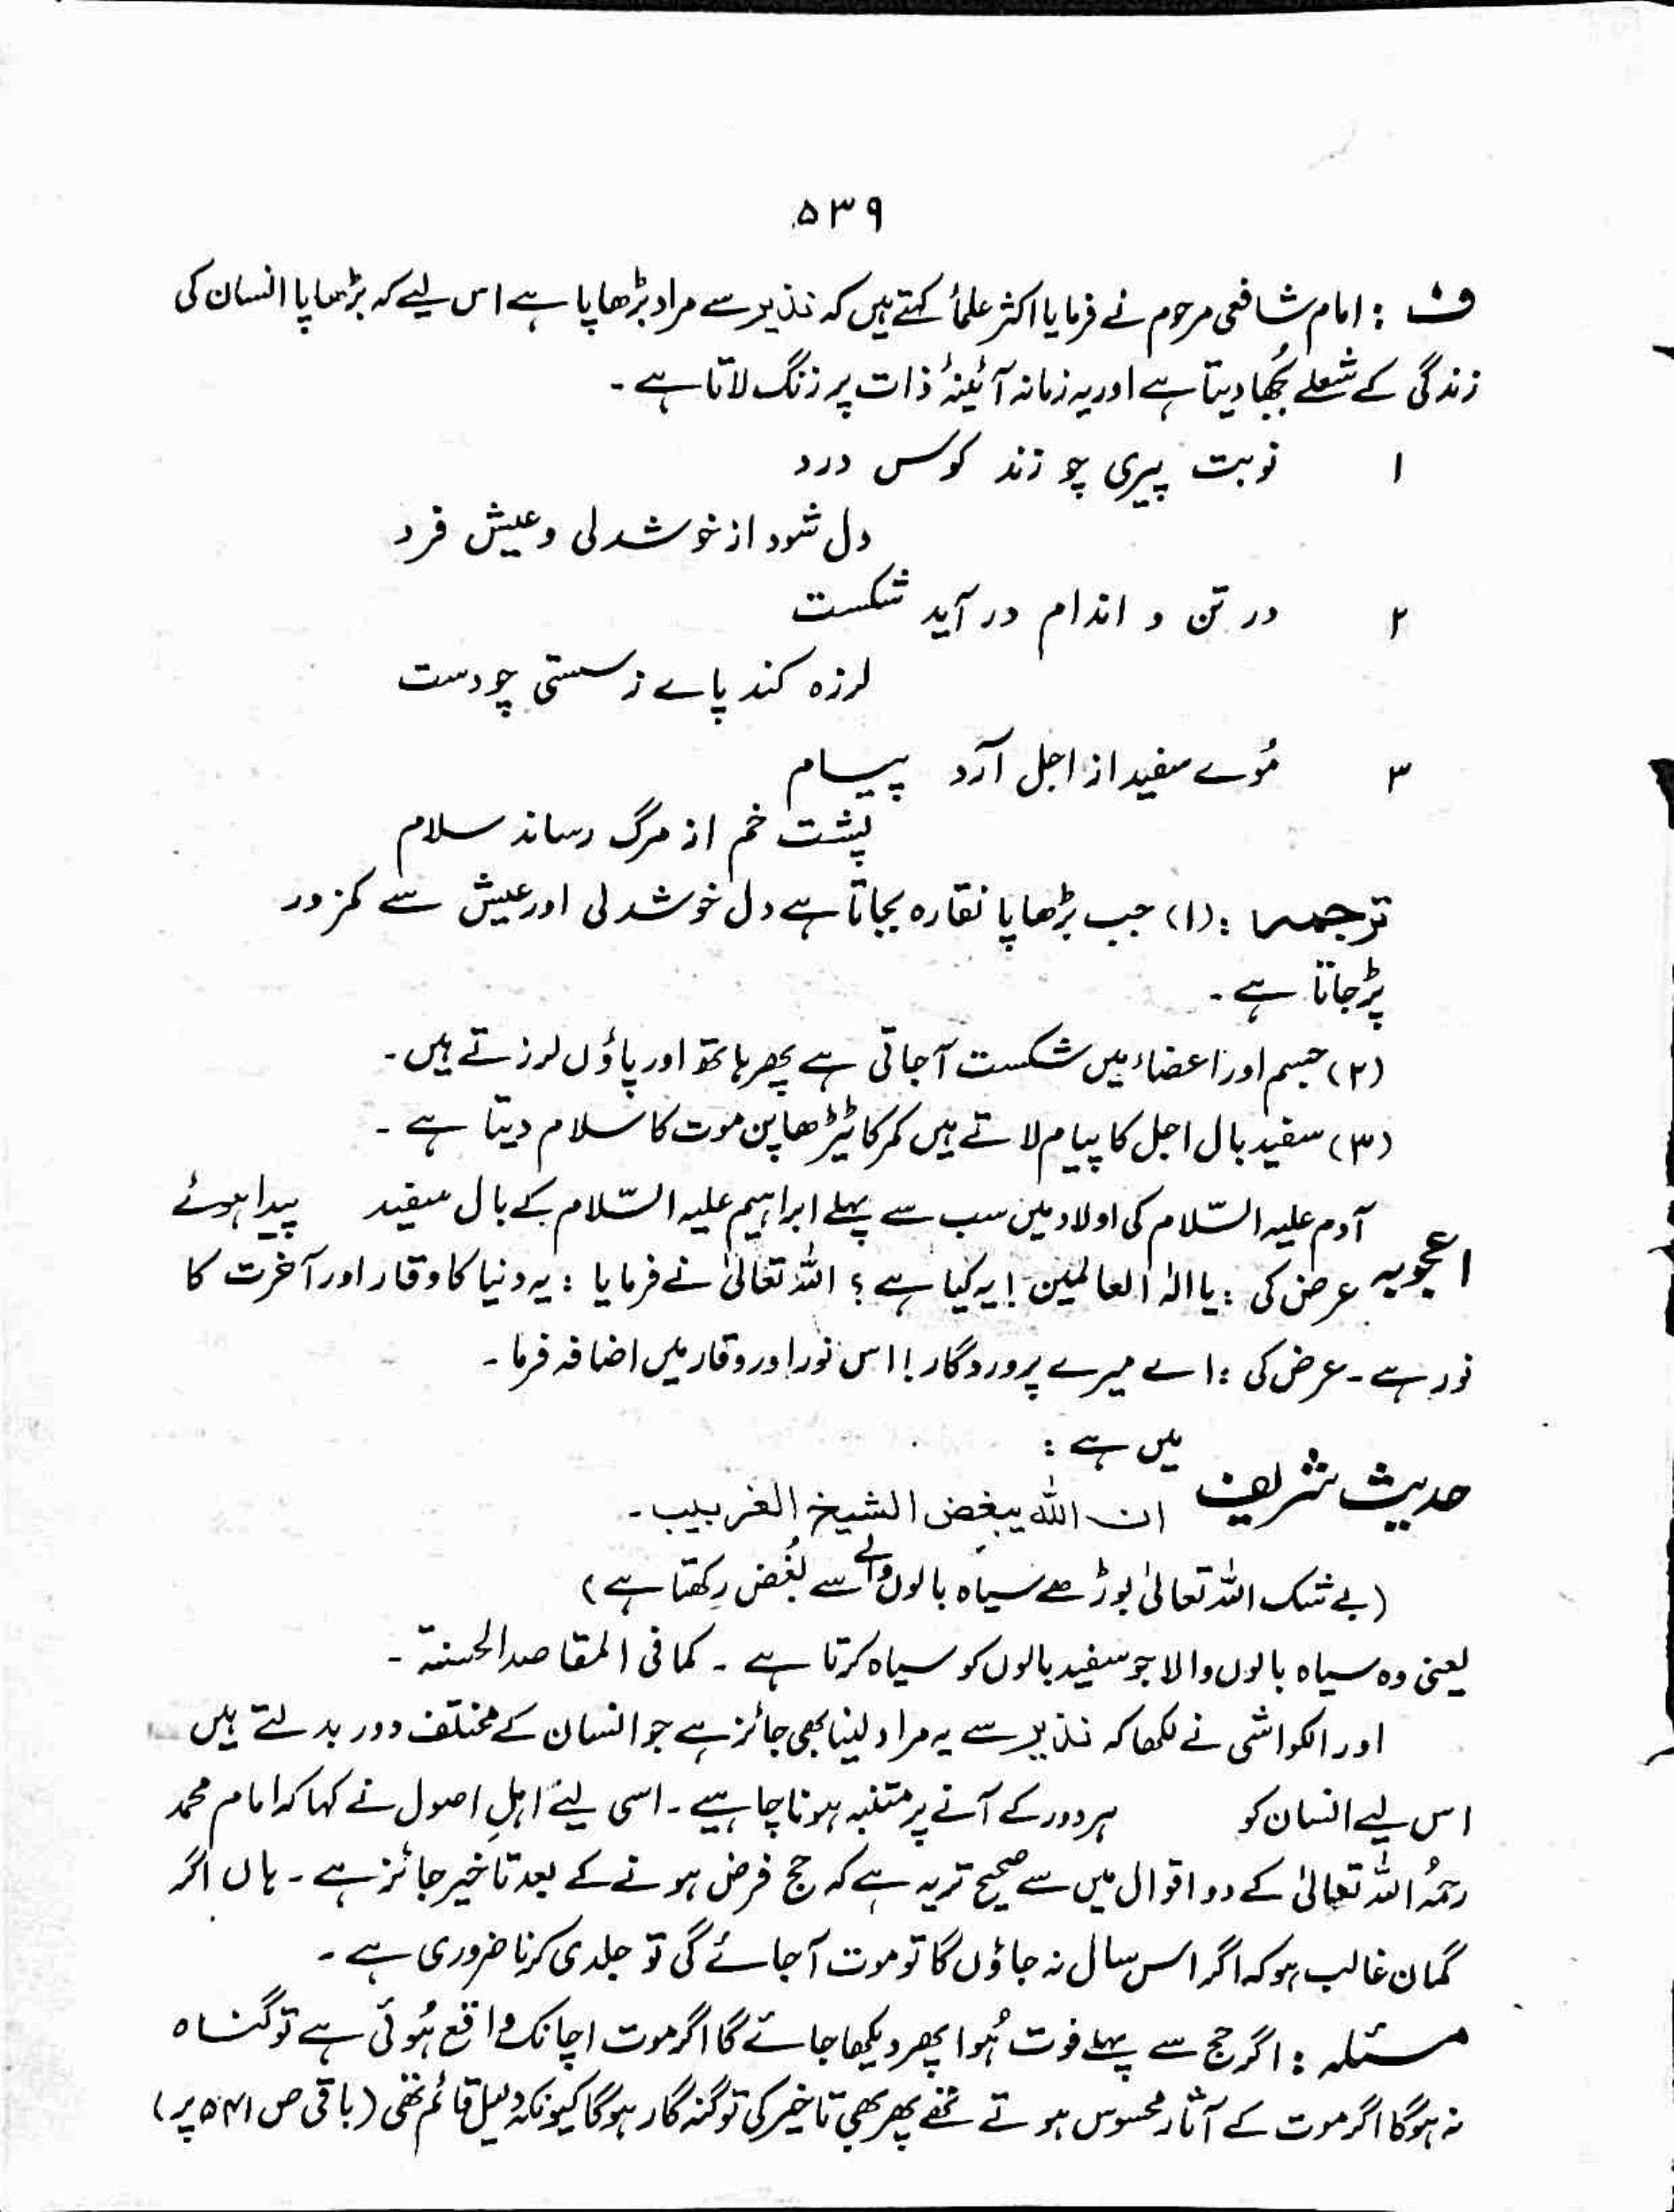 ۵۳۹
ف : امام شافعی مرحوم نے فرمایا اکثر علماً کہتے ہیں کہ نذیر سے مراد بڑھاپا ہے اس لیے کہ بڑھاپا انسان کی
زندگی کے شعلے بُجھا دیتا ہے اور یہ زمانہ آئینۂ ذات پر زنگ لاتا ہے ۔
۱ نوبت پیری چو زند کوس درد
دل شود از خوشدلی و عیش فرد
۲ در تن و اندام در آید شکست
لرزہ کند پاے ز سستی چو دست
۳ مُوے سفید از اجل آرد پیام
پشت خم از مرگ رساند سلام
ترجمہ : (۱) جب بڑھاپا نقارہ بجاتا ہے دل خوشدلی اور عیش سے کمزور
پڑ جاتا ہے ۔
(۲) جسم اور اعضاء میں شکست آجاتی ہے پھر ہاتھ اور پاؤں لرزتے ہیں ۔
(۳) سفید بال اجل کا پیام لاتے ہیں کمر کا ٹیڑھا پن موت کا سلام دیتا ہے ۔
اعجوبہ آدم علیہ السّلام کی اولاد میں سب سے پہلے ابراہیم علیہ السّلام کے بال سفید پیدا ہوئے
عرض کی : یا الٰہ العالمین ! یہ کیا ہے ؟ اللہ تعالیٰ نے فرمایا : یہ دنیا کا وقار اور آخرت کا
نور ہے ۔ عرض کی : اے میرے پروردگار ! اس نور اور وقار میں اضافہ فرما ۔
حدیث شریف میں ہے :
ان اللہ یبغض الشیخ الغربیب ۔
(بے شک اللہ تعالیٰ بوڑھے سیاہ بالوں والے سے بُغض رکھتا ہے)
یعنی وہ سیاہ بالوں والا جو سفید بالوں کو سیاہ کرتا ہے ۔ کما فی المقاصد الحسنۃ ۔
اور الکواشی نے لکھا کہ نذیر سے یہ مراد لینا بھی جائز ہے جو انسان کے مختلف دور بدلتے ہیں
اس لیے انسان کو ہر دور کے آنے پر متنبہ ہونا چاہیے ۔ اسی لیئے اہلِ اصول نے کہا کہ امام محمد
رحمہُ اللہ تعالیٰ کے دو اقوال میں سے صحیح تر یہ ہے کہ حج فرض ہونے کے بعد تاخیر جائز ہے ۔ ہاں اگر
گمان غالب ہو کہ اگر اس سال نہ جاؤں گا تو موت آجائے گی تو جلدی کرنا ضروری ہے ۔
مسئلہ : اگر حج سے پہلے فوت ہُوا پھر دیکھا جائے گا اگر موت اچانک واقع ہُوئی ہے تو گناہ
نہ ہوگا اگر موت کے آثار محسوس ہوتے تھے پھر بھی تاخیر کی تو گنہگار ہوگا کیونکہ دلیل قائم تھی (باقی ص ۵۴۱ پر)